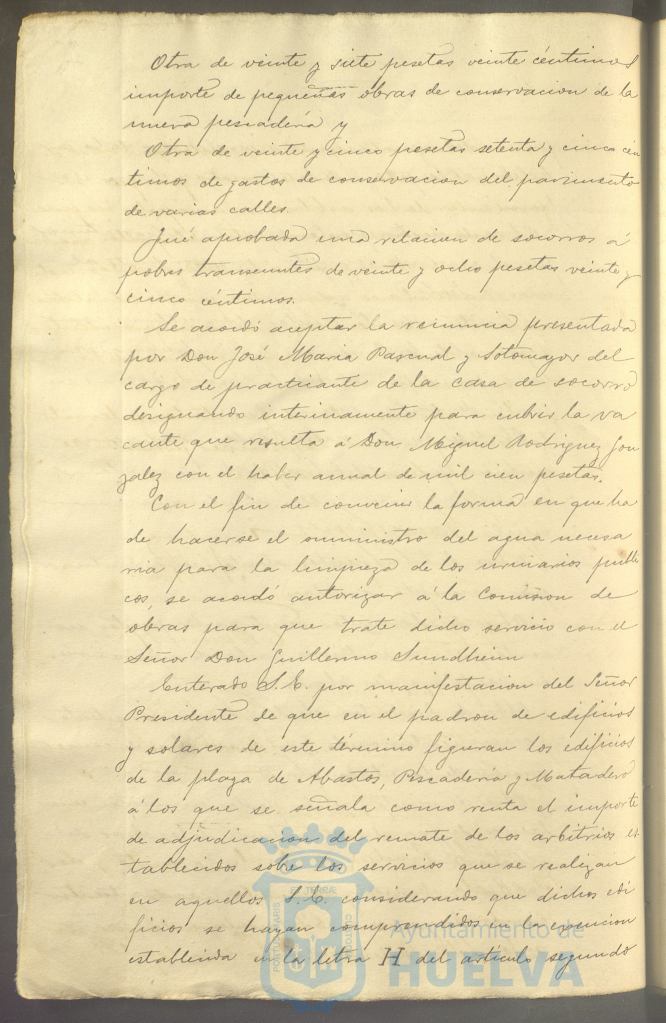 Otra de veinte y siete pesetas veinte céntimos
importe de pequeñas obras de conservacion de la
nueva pescadería y
Otra de veinte y cinco pesetas setenta y cinco cen
timos de gastos de conservacion del pavimento
de varias calles.
Fué aprobada una relacion de socorros á
pobres transeuntes de veinte y ocho pesetas veinte y
cinco céntimos.
Se acordó aceptar la renuncia presentada
por Don José Maria Pascual y Sotomayor del
cargo de practicante de la casa de socorro
designando interinamente para cubrir la va
cante que resulta á Don Miguel Rodriguez Gon
zalez con el haber anual de mil cien pesetas.
Con el fin de convenir la forma en que ha
de hacerse el suministro del agua necesa
ria para la limpieza de los urinarios publi
cos, se acordó autorizar á la Comision de
obras para que trate dicho servicio con el
Señor Don Guillermo Sundheim
Enterado S.E. por manifestacion del Señor
Presidente de que en el padron de edificios
y solares de este término figuran los edificios
de la plaza de Abastos, Pescadería y Matadero
á los que se señala como renta el importe
de adjudicacion del remate de los arbitrios es
tablecidos sobre los servicios que se realizan
en aquellos S.E. considerando que dichos edi
ficios se hayan comprendidos en la exencion
establecida en la letra H del artículo segundo
Ayuntamiento de
HUELVA